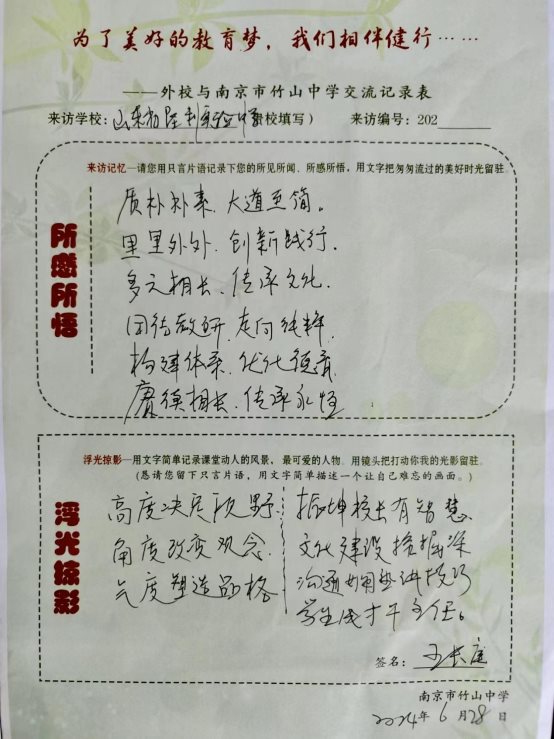 为了美好的教育梦，我们相伴健行……
——外校与南京市竹山中学交流记录表
来访学校：山东 实验中学校填写） 来访编号：202
来访记忆—请您用只言片语记录下您的所见所闻、所感所悟，用文字把匆匆流过的美好时光留驻。
所感所悟
质朴朴素、大道至简。
里里外外、创新践行。
多元相长、传承文化.
团结教研、走向纯粹.
构建体系、优化德育.
广德相长、传承永恒
浮光掠影—用文字简单记录课堂动人的风景，最可爱的人物。用镜头把打动你我的光影留驻。
（恳请您留下只言片语，用文字简单描述一个让自己难忘的画面。）
浮光掠影
高度决定视野.
角度改变观念.
气度塑造品格
振坤校长有智慧.
文化建设挖掘深
沟通 讲技巧
学生成才千主任。
签名：王长庭
南京市竹山中学
2024年6月28日